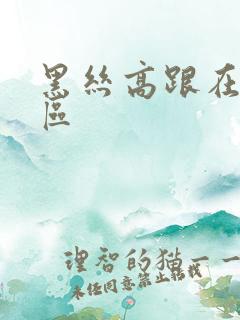 黑丝高跟在
区
理智的猫一一
未经同意禁止转载